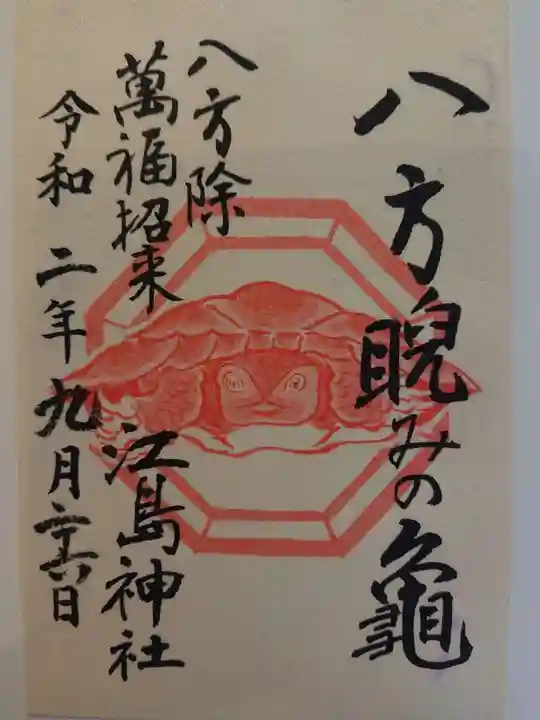 八方睨みの亀
八方除
萬福招来 江島神社
令和二年九月二十六日